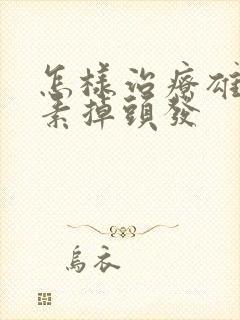 怎樣治療雄
素掉頭發
烏衣